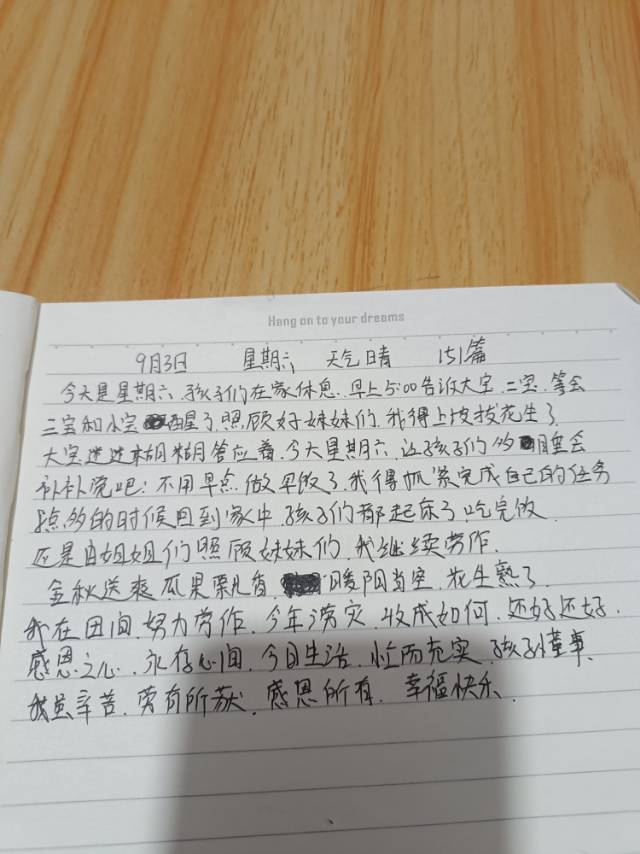 Hang on to your dreams
9月3日 星期六 天气晴 151篇
今天是星期六.孩子们在家休息.早上5:00告诉大宝.二宝.等会
三宝和小宝醒了.照顾好妹妹们.我得上坡拔花生了.
大宝迷迷糊糊答应着.今天星期六.让孩子们多睡会
补补觉吧!不用早点做早饭了.我得抓紧完成自己的任务
8点多的时候回到家中.孩子们都起床了.吃完饭.
还是由姐姐们照顾妹妹们.我继续劳作.
金秋送爽瓜果飘香.暖阳当空.花生熟了.
我在田间.努力劳作.今年涝灾.收成如何.还好还好.
感恩之心.永存心间.今日生活.忙而充实.孩子懂事.
我虽辛苦.劳有所获.感恩所有.幸福快乐.